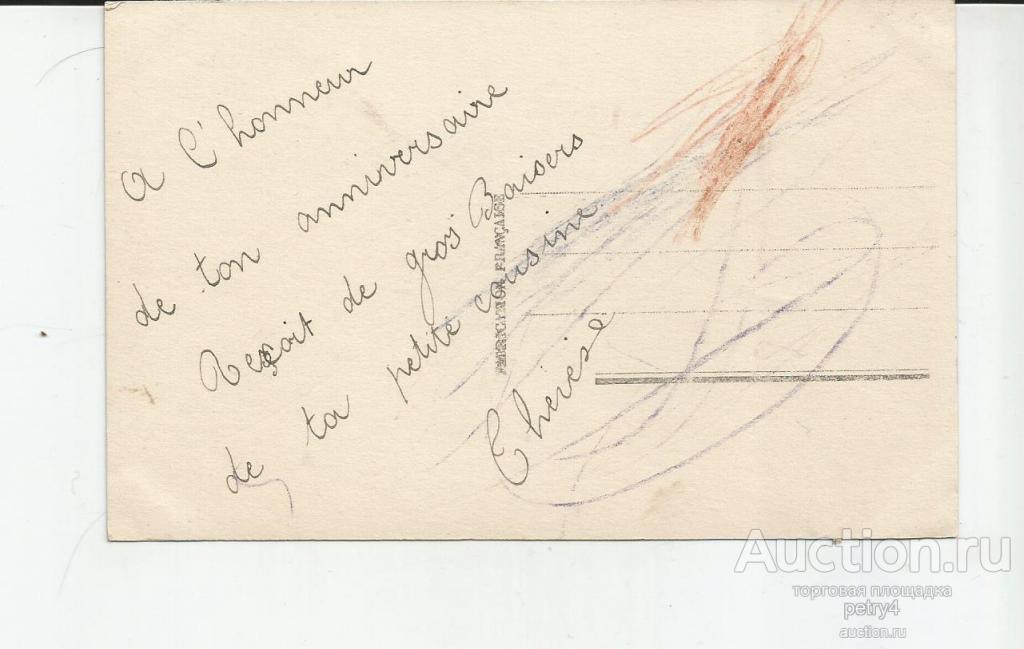 a l'honneur
de ton anniversaire
Reçoit de gros Baisers
de ta petite cousine
Therese
FABRICATION FRANÇAISE
Auction.ru
торговая площадка
petry4
auction.ru